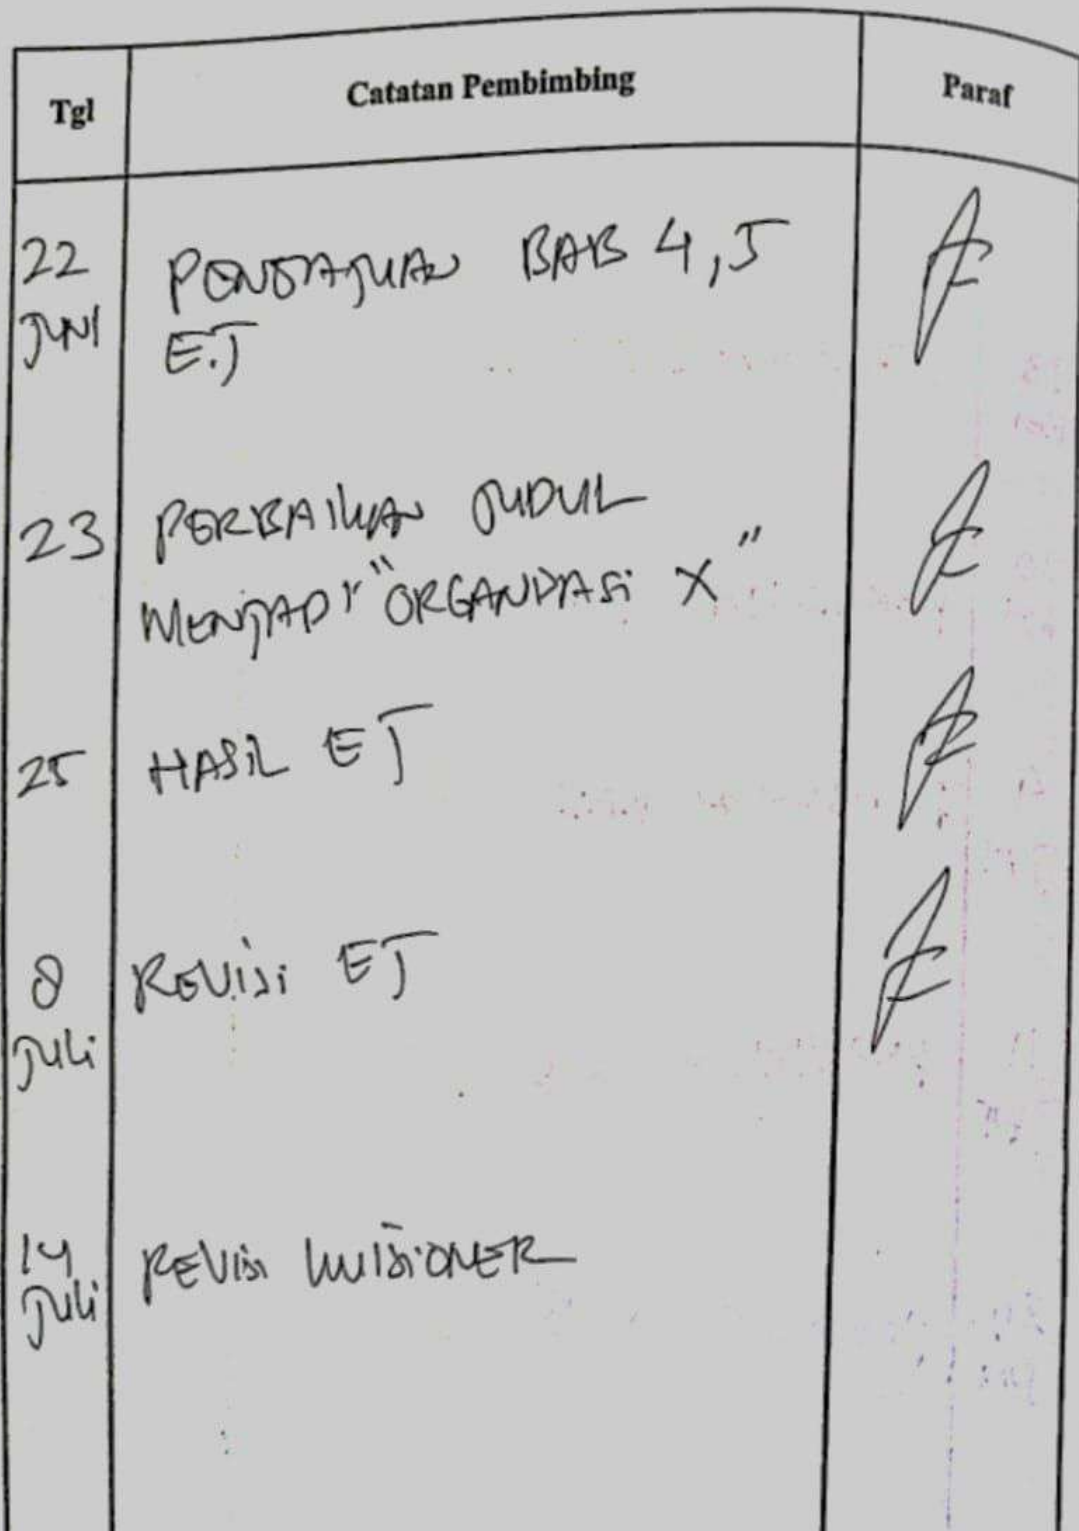 Tgl Catatan Pembimbing Paraf
22 PENGAJUAN BAB 4,5
JUNI E.J
23 PERBAIKAN JUDUL
MENJADI "ORGANISASI X"
25 HASIL EJ
8 REVISI EJ
JULI
14 REVISI KUISIONER
JULI